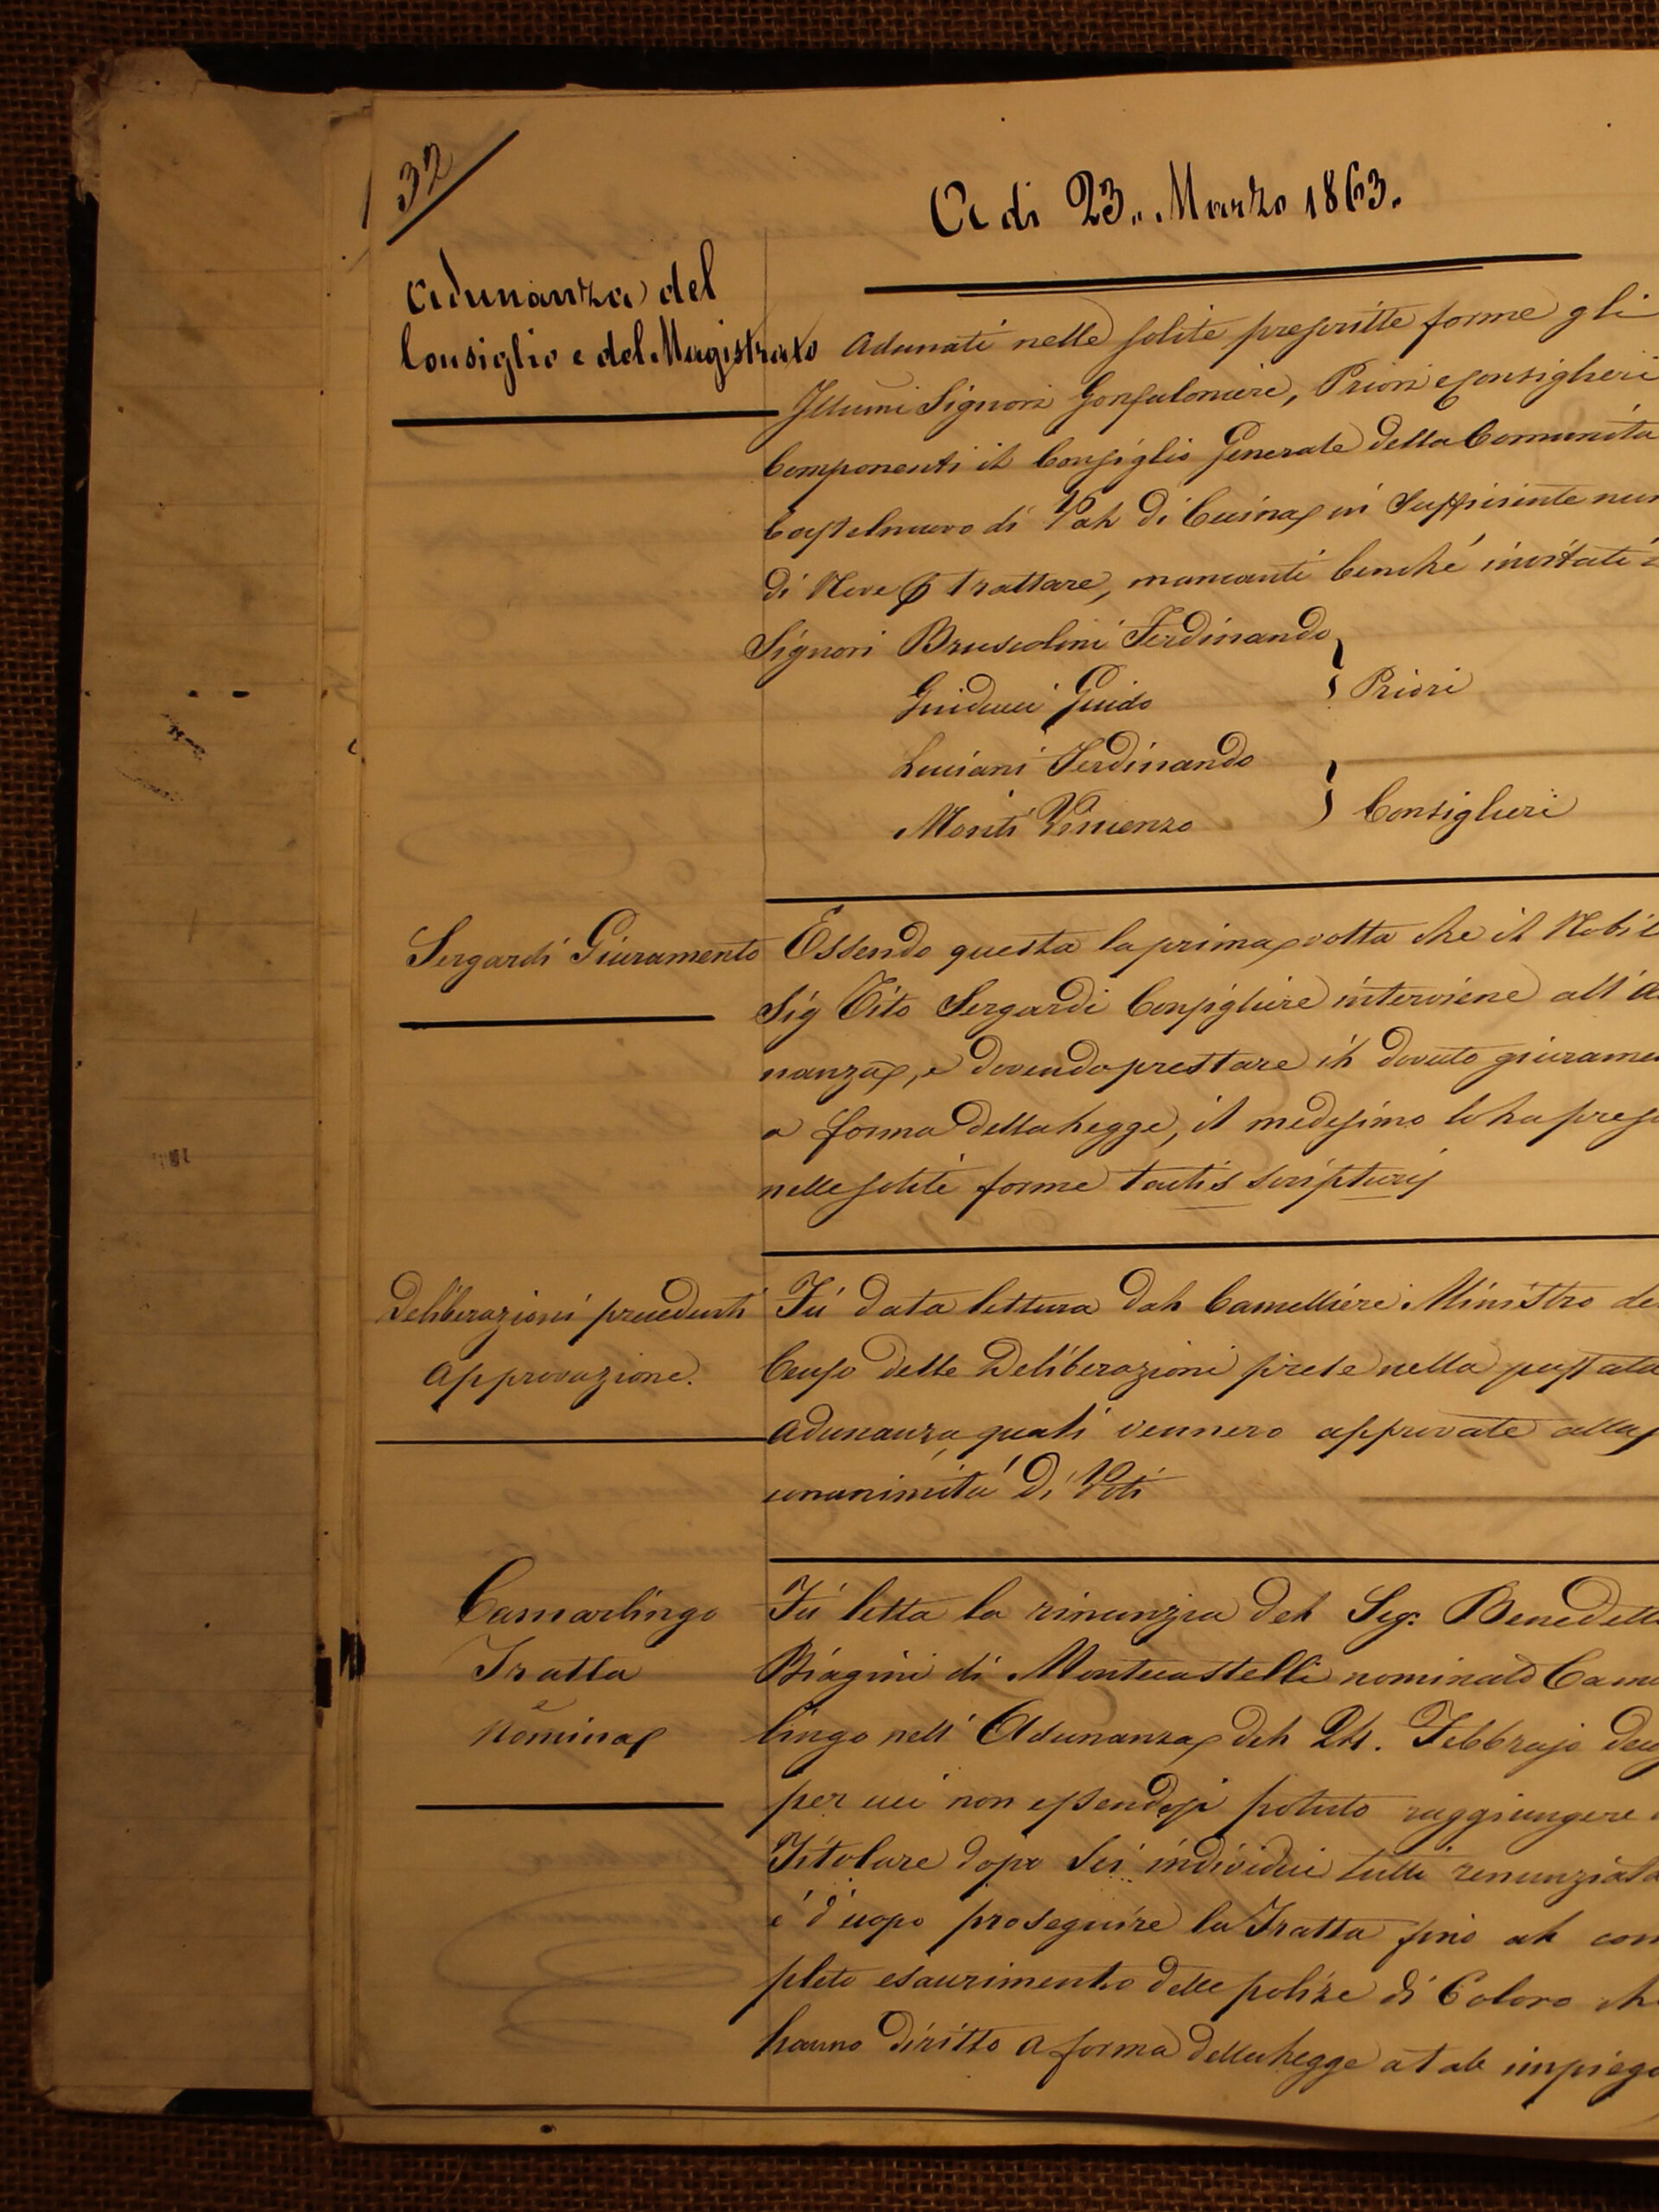 32
A di 23. Marzo 1863.
Adunanza del
Consiglio e del Magistrato
Adunati nelle solite prescritte forme gli
Illumi Signori Gonfaloniere, Priori e Consiglieri
Componenti il Consiglio Generale della Comunità
Castelnuovo di Val di Cecina in Sufficiente num
di Nove p trattare, mancanti benché invitati i
Signori Bruscolini Ferdinando
Guiducci Guido
} Priori
Luciani Ferdinando
Monti Vincenzo
} Consiglieri
Sergardi Giuramento
Essendo questa la prima volta che il Nobil
Sig Tito Sergardi Consigliere interviene all'a
nanza, e dovendo prestare il dovuto giurame
a forma della Legge, il medesimo lo ha pres
nelle solite forme tactis scripturis
Deliberazioni precedenti
approvazione.
Fù data lettura dal Cancelliere Ministro de
Censo delle Deliberazioni prese nella passata
adunanza, quali vennero approvate alla
unanimità di Voti
Camarlingo
Tratta
e
Nomina
Fù letta la rinunzia del Sig: Benedett
Biagini di Montecastelli nominato Cama
lingo nell'Adunanza del 24. Febbrajo
per cui non essendosi potuto raggiungere
Titolare dopo sei individui tutti renunziata
è d'uopo proseguire la Tratta fino al com
pleto esaurimento delle polize di Coloro ch
hanno diritto a forma della Legge a tale impiego